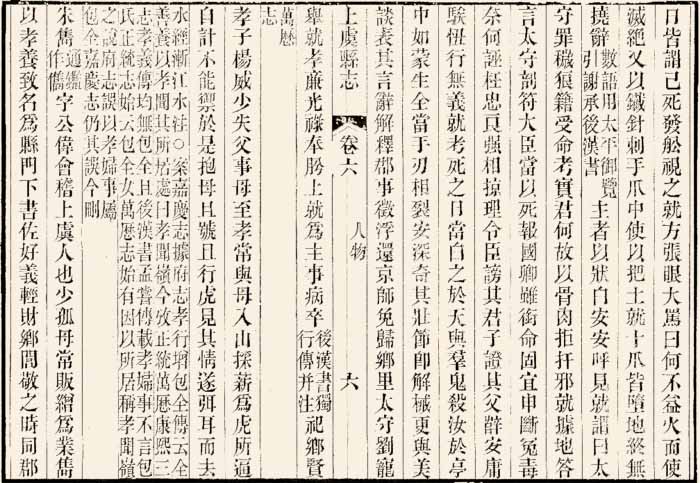 日皆謂已死發船視之就方張眼大罵曰何不益火而使
滅絕又以鐵針刺手爪中使以把土就十爪皆墮地終無
撓辭數語用太平御覽引謝承後漢書主者以狀白安安呼見就謂曰太
守罪穢狼籍受命考實君何故以骨肉拒扞邪就據地答
言太守剖符大臣當以死報國卿雖銜命固宜申斷冤毒
奈何誣枉忠良强相掠理令臣謗其君子證其父薛安庸
騃忸行無義就考死之日當白之於天與羣鬼殺汝於亭
中如蒙生全當手刃相裂安深奇其壯節卽解械更與美
談表其言辭解釋郡事徵浮還京師免歸鄉里太守劉寵
上虞縣志 卷六 人物 六
舉就孝廉光祿奉肹上就爲主事病卒後漢書獨行傳幷注祀鄉賢
萬歷志
孝子楊威少失父事母至孝常與母入山採薪爲虎所逼
自計不能禦於是抱母且號且行虎見其情遂弭耳而去
水經漸江水注○案嘉慶志據府志孝行增包全傳云全
善養以孝聞其所居處曰孝聞嶺今攷正統志萬歷康熙三
志孝義傳均無包全且後漢書孟嘗傳載孝婦事不言包
氏正統志始云包全女萬歷志始有因以所居稱孝聞嶺
之說府志誤以孝婦事屬
包全嘉慶志仍其誤今刪
朱儁通鑑作字公偉會稽上虞人也少孤母常販繒爲業儁
以孝養致名爲縣門下書佐好義輕財鄉閭敬之時同郡